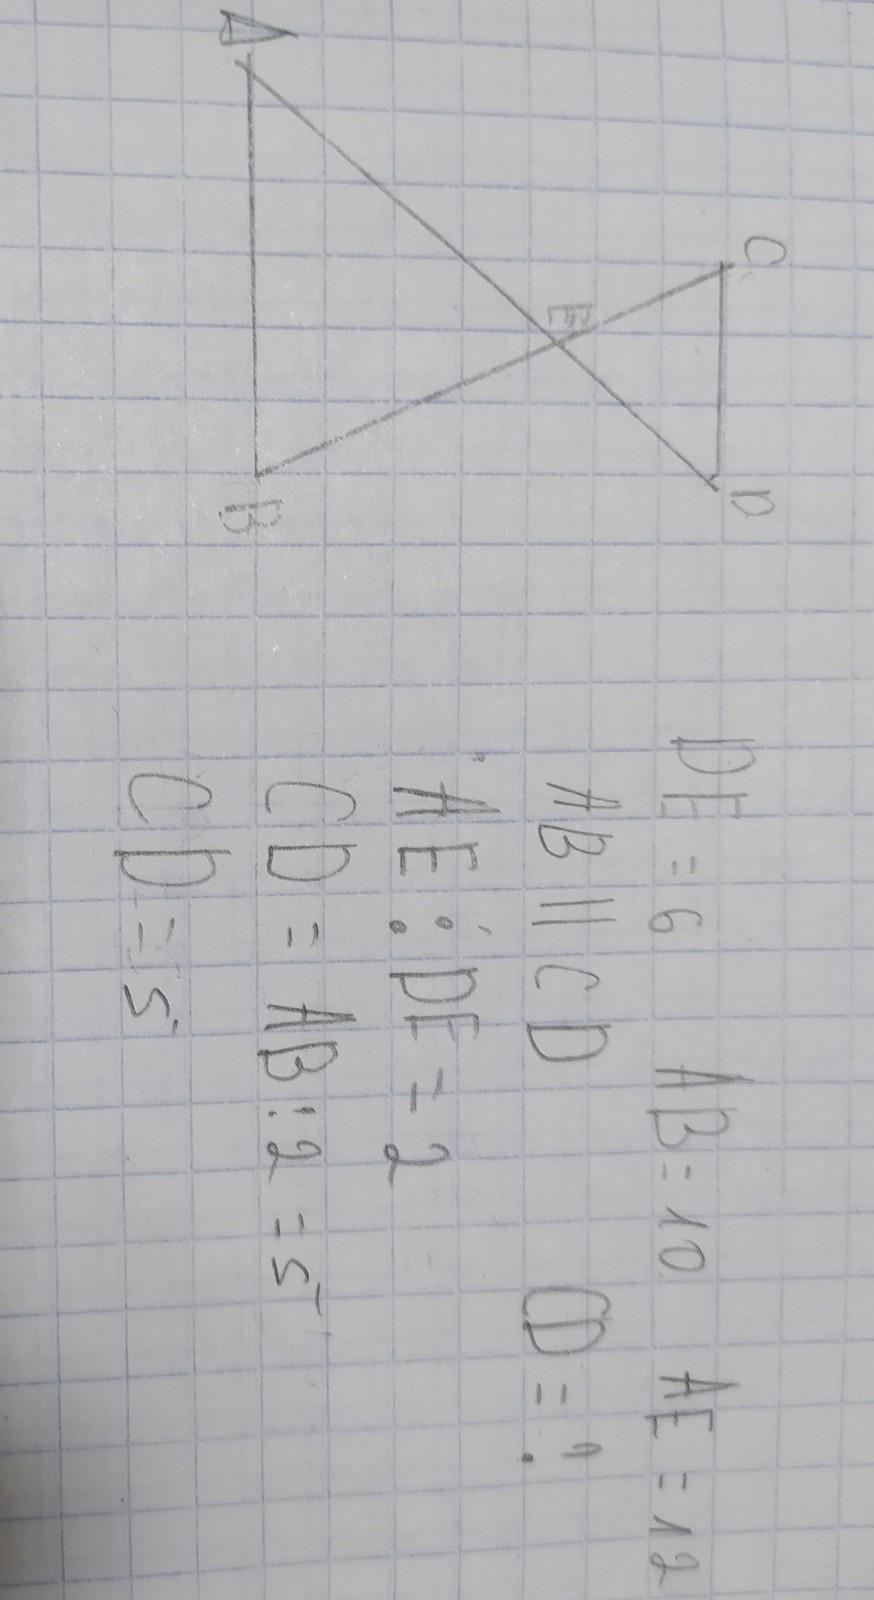 C D
E
A B
DE = 6 AB = 10 AE = 12
AB || CD CD = ?
AE : DE = 2
CD = AB : 2 = 5
CD = 5